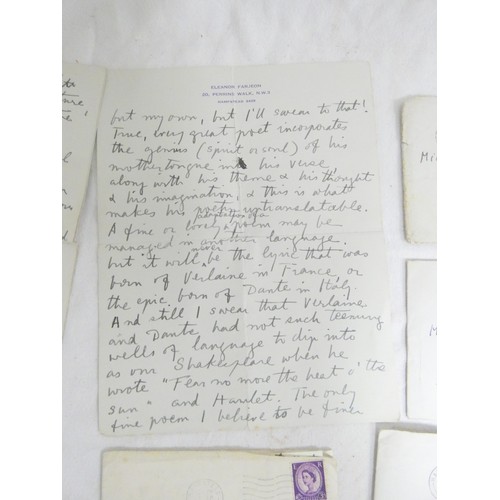 ELEANOR FARJEON
20, PERRINS WALK, N.W.3
HAMPSTEAD
but my own, but I'll swear to that!
True, every great poet incorporates
the genius (spirit or soul) of his
mother tongue into his verse
along with his theme & his thought
& his imagination, & this is what
makes his poetry untranslatable.
A fine or lovely a poem may be
managed in another language.
but it will never be the lyric that was
born of Verlaine in France, or
the epic born of Dante in Italy.
And still I swear that Verlaine
and Dante had not such teeming
wells of language to dip into
as our Shakespeare when he
wrote "Fear no more the heat o' the
sun" and Hamlet. The only
fine poem I believe to be finer